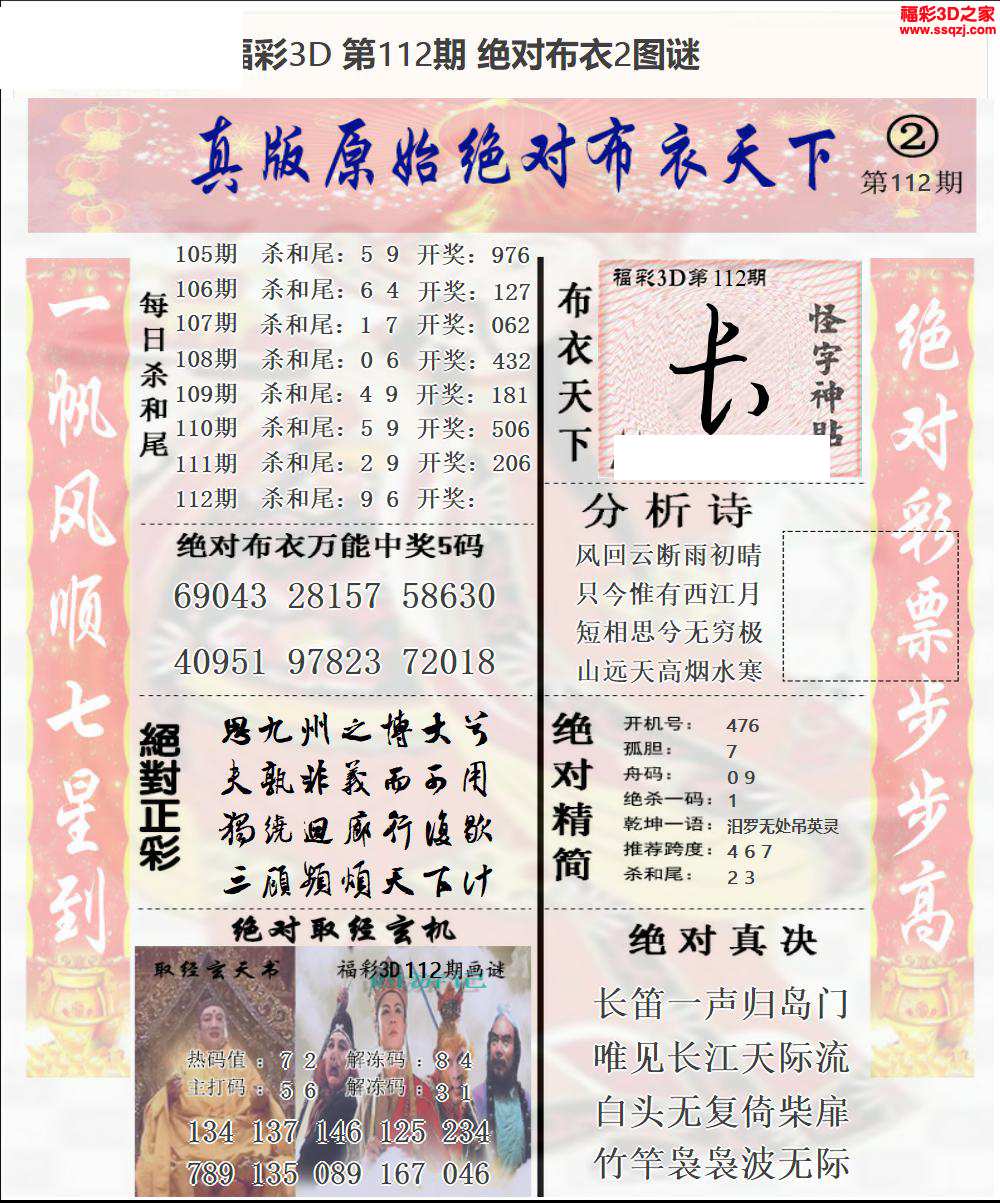 福彩3D之家
www.ssqzj.com
福彩3D 第112期 绝对布衣2图谜
真版原始绝对布衣天下
②
第112期
一帆风顺七星到
每日杀和尾
105期 杀和尾：5 9 开奖：976
106期 杀和尾：6 4 开奖：127
107期 杀和尾：1 7 开奖：062
108期 杀和尾：0 6 开奖：432
109期 杀和尾：4 9 开奖：181
110期 杀和尾：5 9 开奖：506
111期 杀和尾：2 9 开奖：206
112期 杀和尾：9 6 开奖：
绝对布衣万能中奖5码
69043 28157 58630
40951 97823 72018
絕對正彩
思九州之博大兮
夫孰非義而可用
獨繞迴廊行復歇
三顧頻煩天下计
绝对取经玄机
取经玄天书
福彩3D112期画谜
热码值：7 2 解冻码：8 4
主打码：5 6 解冻码：3 1
134 137 146 125 234
789 135 089 167 046
布衣天下
福彩3D第112期
怪字神贴
分析诗
风回云断雨初晴
只今惟有西江月
短相思兮无穷极
山远天高烟水寒
绝对精简
开机号： 476
孤胆： 7
舟码： 0 9
绝杀一码：1
乾坤一语：汨罗无处吊英灵
推荐跨度：4 6 7
杀和尾： 2 3
绝对真决
长笛一声归岛门
唯见长江天际流
白头无复倚柴扉
竹竿袅袅波无际
绝对彩票步步高